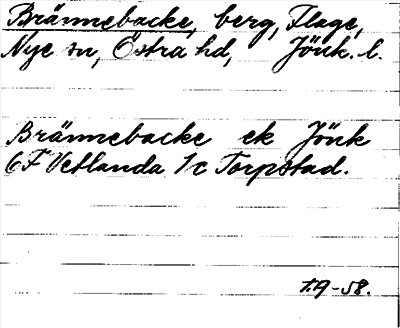 Brännebacke, berg, Flage,
Nye sn, Östra hd, Jönk. l.
Brännebacke ek Jönk
6F Vetlanda 1c Torpstad.
T.9-58.